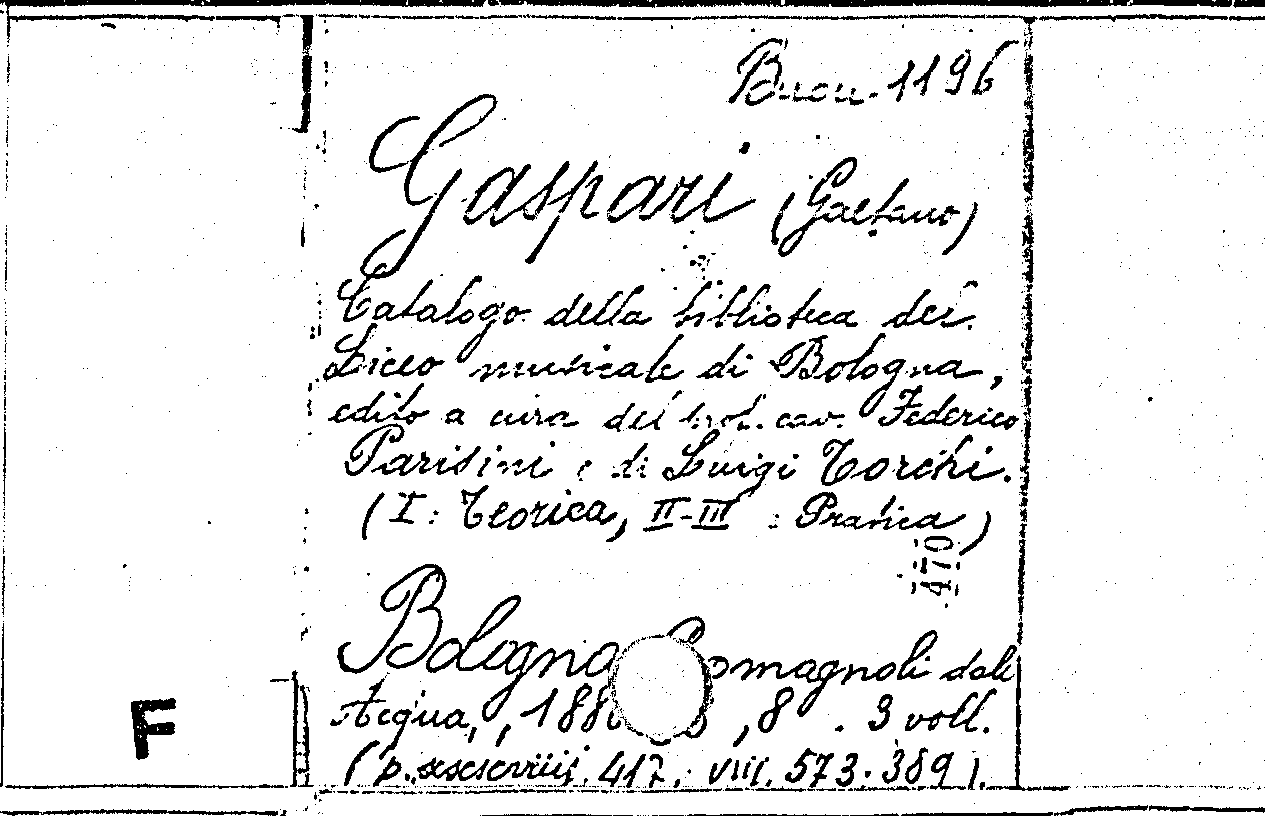 Buon. 1196
Gaspari (Gaetano)
Catalogo della biblioteca del
Liceo musicale di Bologna,
edito a cura del prof. cav. Federico
Parisini e di Luigi Torchi.
(I: Teorica, II-III : Pratica)
470
Bologna omagnoli dall
Acqua, , 188 ,8 . 3 voll.
(p. 417; VIII. 573. 389).
F